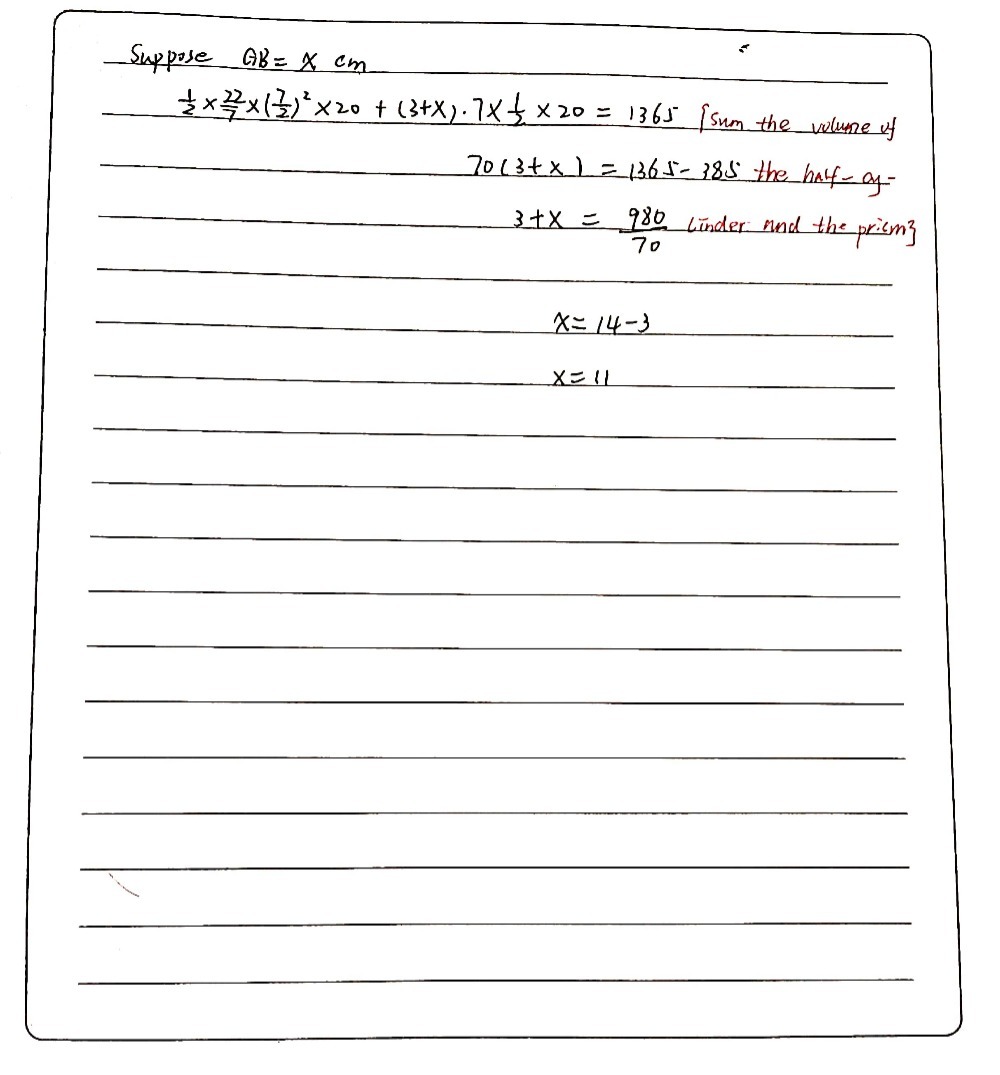 Suppose AB = x cm
1/2 × 22/7 × (7/2)² × 20 + (3+x).7 × 1/2 × 20 = 1365 {Sum the volume of
70(3+x) = 1365 - 385 the half-cy-
3+x = 980/70 linder and the prism}
x = 14-3
x = 11